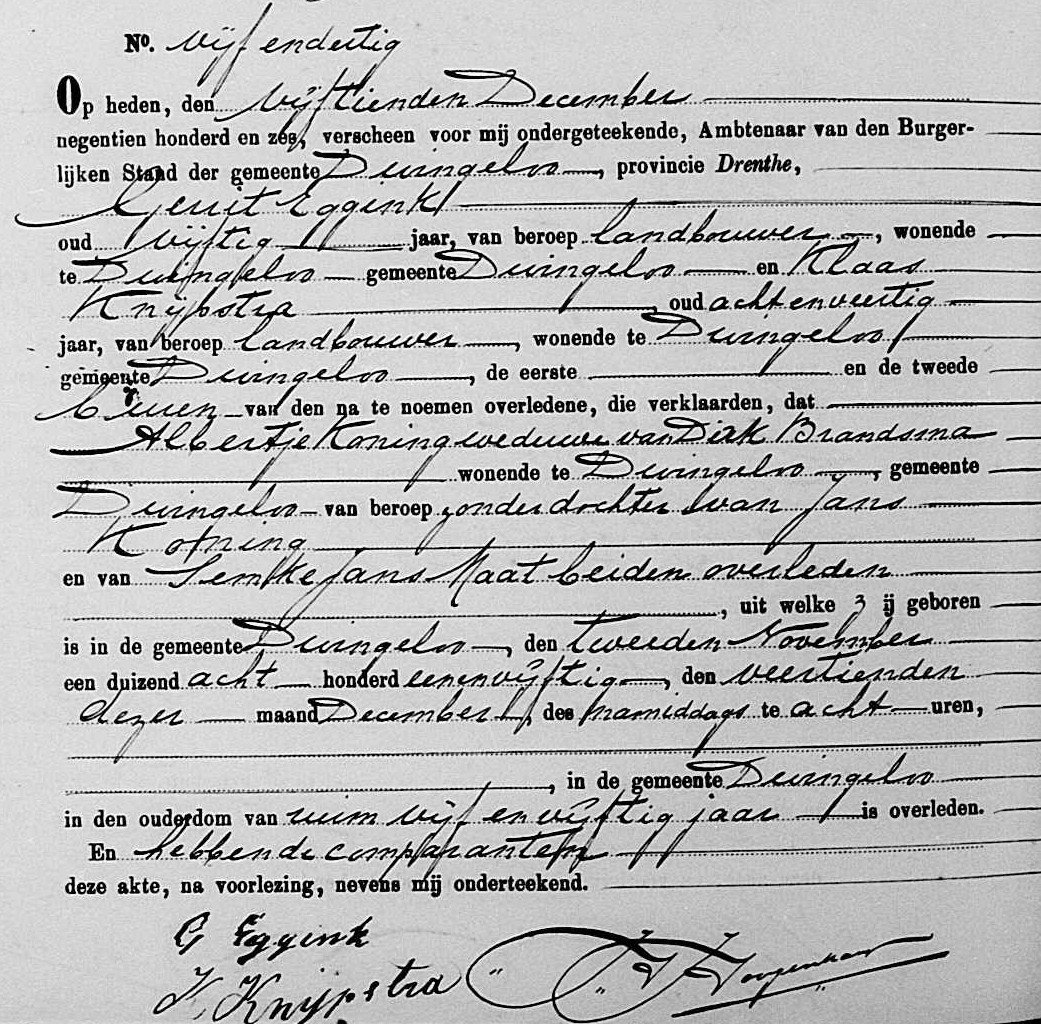 No. vijf en dertig
Op heden, den vijftienden December
negentien honderd en zes, verscheen voor mij ondergeteekende, Ambtenaar van den Burger-
lijken Stand der gemeente Dwingeloo, provincie Drenthe,
Gerrit Eggink
oud vijftig jaar, van beroep landbouwer, wonende
te Dwingeloo gemeente Dwingeloo en Klaas
Knijpstra, oud acht en veertig
jaar, van beroep landbouwer, wonende te Dwingeloo
gemeente Dwingeloo, de eerste en de tweede
buren van den na te noemen overledene, die verklaarden, dat
Albertje Koning weduwe van Dirk Brandsma
wonende te Dwingeloo, gemeente
Dwingeloo van beroep zonder dochter van Jans
Koning
en van Jans Maat beiden overleden
, uit welke zij geboren
is in de gemeente Dwingeloo, den tweeden November
een duizend acht honderd een en vijftig, den veertienden
dezer maand December, des namiddags te acht uren,
, in de gemeente Dwingeloo
in den ouderdom van ruim vijf en vijftig jaar is overleden.
En hebbende comparanten
deze akte, na voorlezing, nevens mij onderteekend.
G Eggink
K Knijpstra